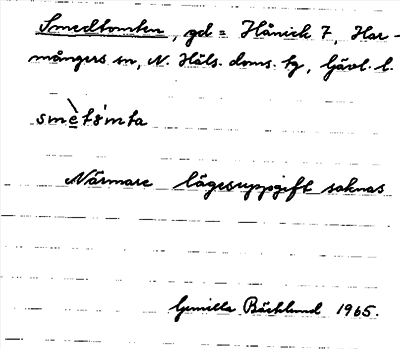 Smedtomten, gd = Hånick 7, Har-
mångers sn, N. Häls. doms. tg, Gävl. l.
smètåm̀ta
Närmare lägesuppgift saknas
Gunilla Bäcklund 1965.